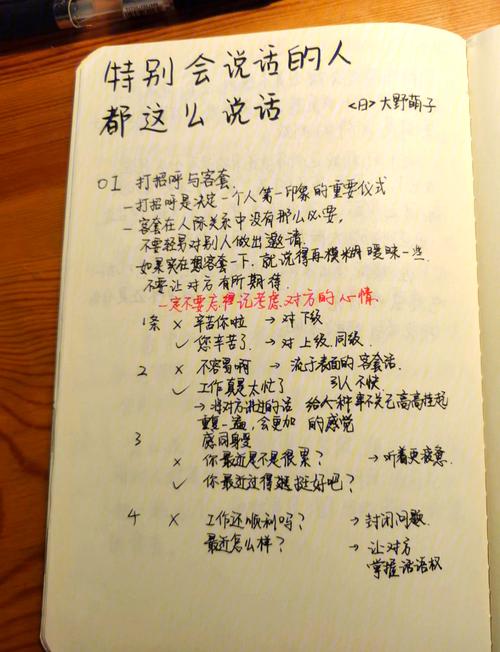 特别会说话的人
都这么说话 <日>大野萌子
01 打招呼与客套
- 打招呼是决定一个人第一印象的重要仪式
- 客套在人际关系中没有那么必要,
不要轻易对别人做出邀请.
如果实在想客套一下,就说得再模糊暧昧一些.
不要让对方有所期待.
一定不要忘得记考虑对方的心情.
1条 × 辛苦你啦 → 对下级
✓ 您辛苦了. → 对上级.同级.
2 × 不容易啊 → 流于表面的客套话.
✓ 工作真是太忙了 引人不快
→ 将对方说过的话 给人种事不关己高高挂起
重复一遍,会更加 的感觉
感同身受
3
× 你最近是不是很累? → 听着更疲惫.
✓ 你最近过得挺好吧?
4 × 工作还顺利吗? → 封闭问题.
最近怎么样? → 让对方
掌握话语权